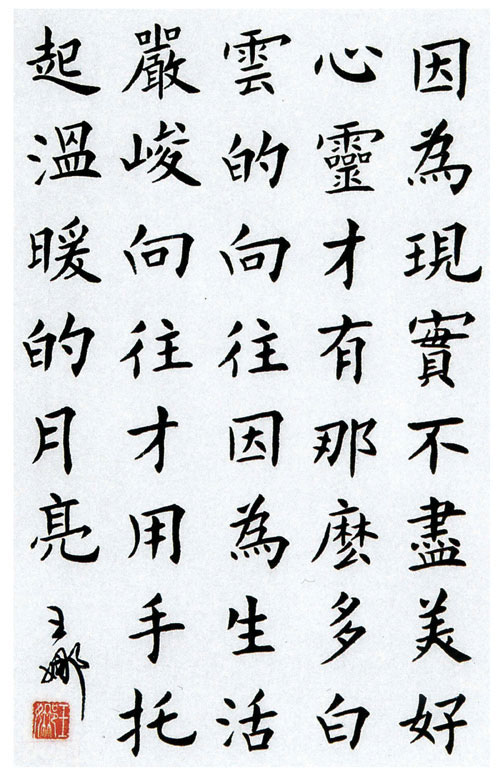 因為現實不盡美好
心靈才有那麼多白
雲的向往因為生活
嚴峻向往才用手托
起溫暖的月亮
王娜
王娜